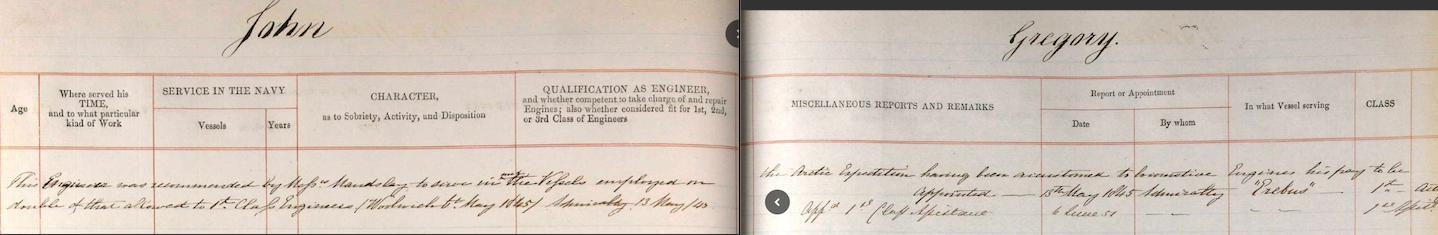 John
Gregory.
Age
Where served his
TIME,
and to what particular
kind of Work
SERVICE IN THE NAVY
Vessels
Years
CHARACTER,
as to Sobriety, Activity, and Disposition
QUALIFICATION AS ENGINEER,
and whether competent to take charge of and repair
Engines; also whether considered fit for 1st, 2nd,
or 3rd Class of Engineers
MISCELLANEOUS REPORTS AND REMARKS
Report or Appointment
Date
By whom
In what Vessel serving
CLASS
This Engineer was recommended by Messrs Maudslay to serve in the Vessels employed on the Arctic Expedition having been accustomed to locomotive Engines his pay to be
double of that allowed to 1st Class Engineers (Woolwich 6th May 1845) Admiralty 13 May/45 Appointed 13th May 1845 Admiralty "Erebus" 1st
Appd 1st Class Assistant 6 June 51 1st Asst